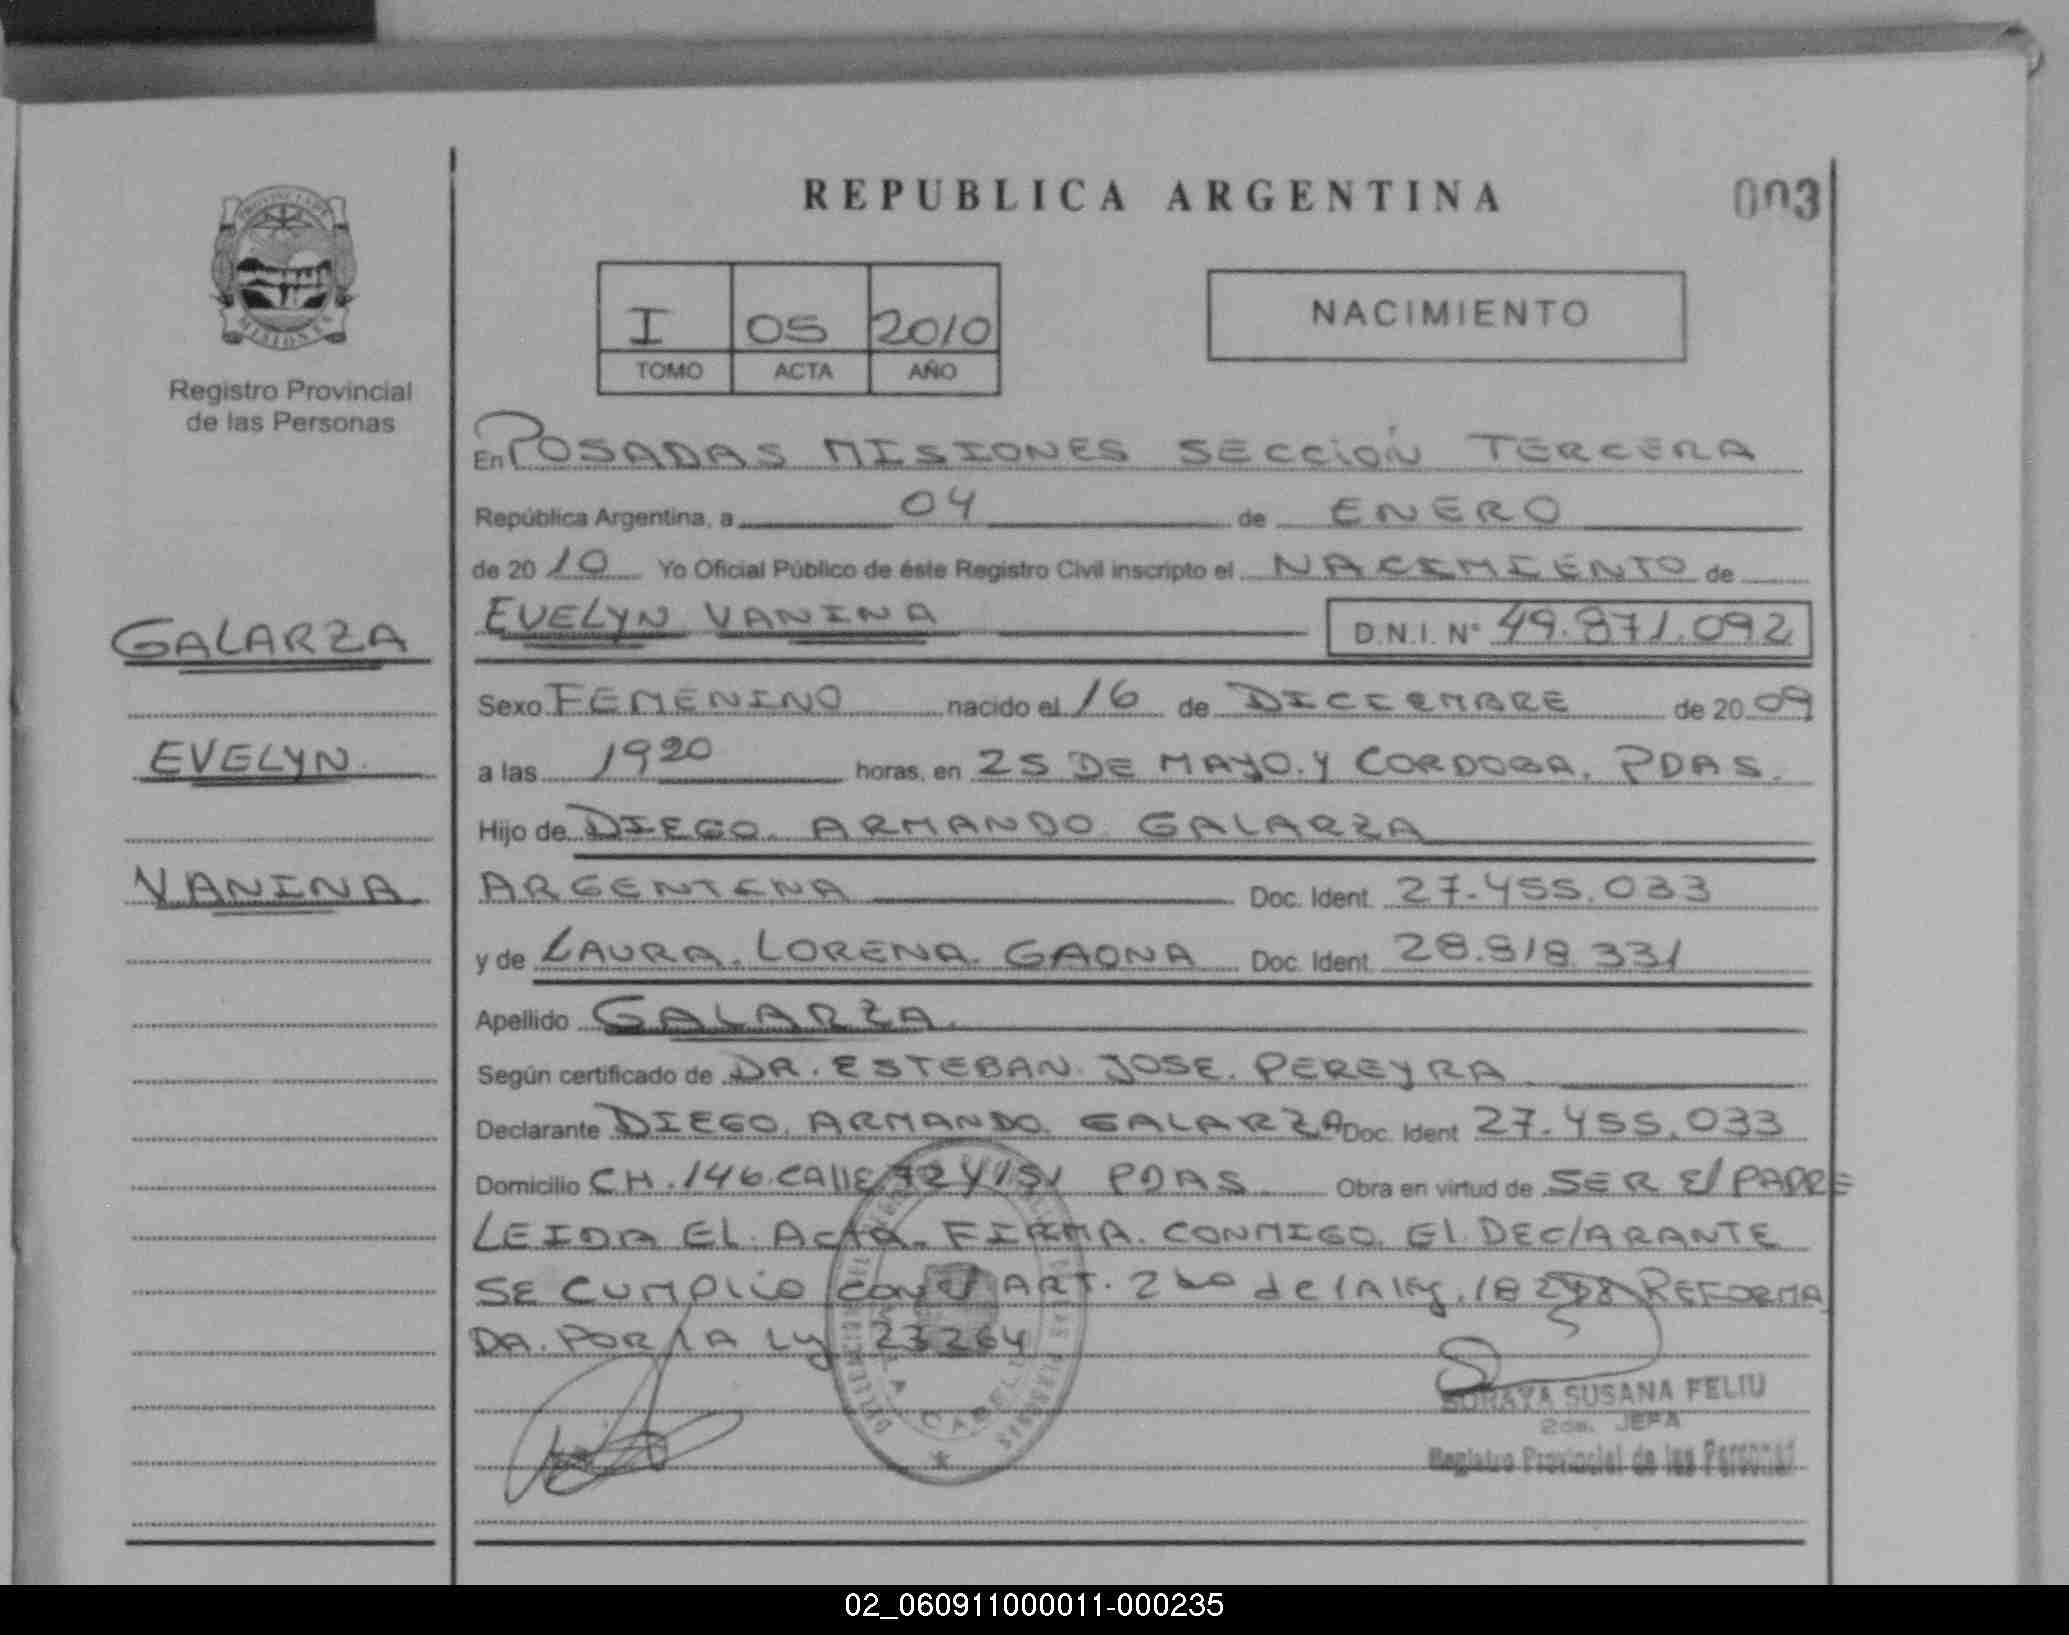 REPUBLICA ARGENTINA
003
PROVINCIA DE
MISIONES
Registro Provincial
de las Personas
I 05 2010
TOMO ACTA AÑO
NACIMIENTO
En POSADAS MISIONES SECCIÓN TERCERA
República Argentina, a 04 de ENERO
de 20 10 Yo Oficial Público de éste Registro Civil inscripto el NACIMIENTO de
EVELYN VANINA D.N.I. Nº 49.871.092
GALARZA
EVELYN
VANINA
Sexo FEMENINO nacido el 16 de DICIEMBRE de 20 09
a las 1920 horas, en 25 DE MAYO.Y CORDOBA. PDAS.
Hijo de DIEGO. ARMANDO. GALARZA
ARGENTINA Doc. Ident. 27.455.033
y de LAURA. LORENA. GAONA Doc. Ident. 28.818.331
Apellido GALARZA.
Según certificado de DR. ESTEBAN. JOSE. PEREYRA
Declarante DIEGO. ARMANDO. GALARZA Doc. Ident 27.455.033
Domicilio CH.146.CAllE PDAS Obra en virtud de SER El PADRE
LEIDA EL. ActA. FIRMA. CONMIGO. El. DEClARANTE
SE CUMPLIO con el ART. 2 de lA ley. REFORMA
DA. POR lA Ly 23264
SORAYA SUSANA FELIU
2da. JEFA
Registro Provincial de las Personas
02_060911000011-000235